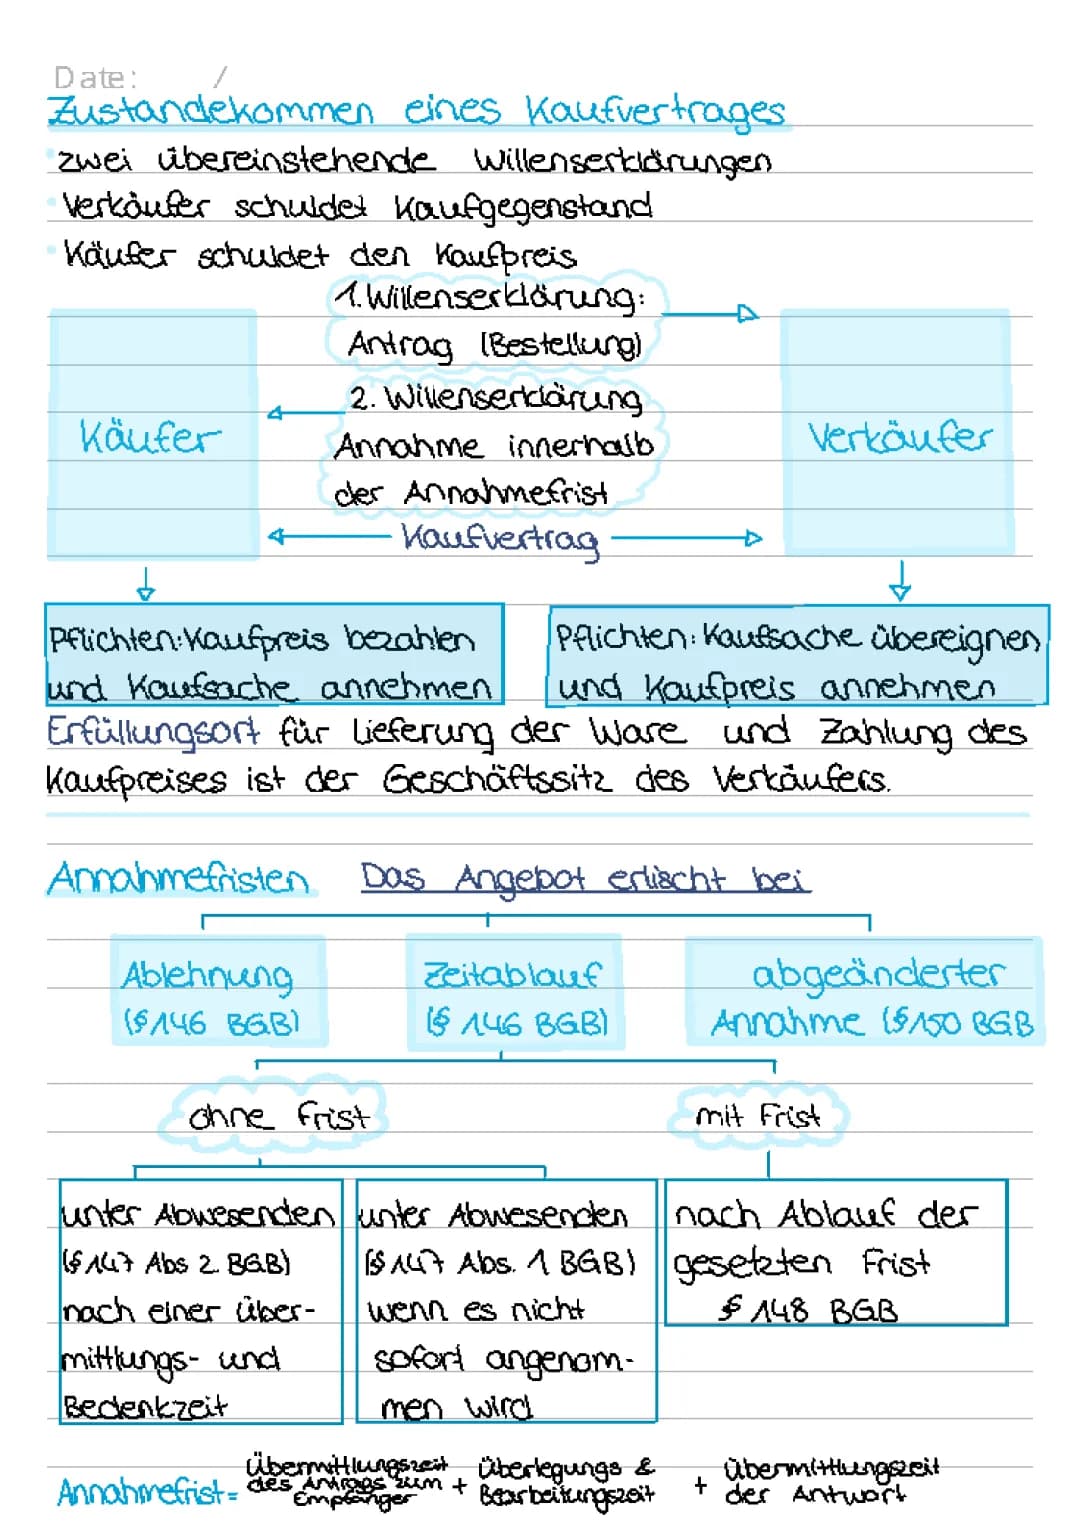 Date: /
Zustandekommen eines Kaufvertrages
zwei übereinstehende Willenserklärungen
Verkäufer schuldet Kaufgegenstand
Käufer schuldet den Kaufpreis
1. Willenserklärung:
Antrag (Bestellung)
2. Willenserklärung
Annahme innerhalb
der Annahmefrist
Käufer
Verkäufer
Kaufvertrag
Pflichten: Kaufpreis bezahlen
und Kaufsache annehmen
Pflichten: Kaufsache übereignen
und Kaufpreis annehmen
Erfüllungsort für Lieferung der Ware und Zahlung des
Kaufpreises ist der Geschäftssitz des Verkäufers.
Annahmefristen Das Angebot erlischt bei
Ablehnung
(§146 BGB)
Zeitablauf
(§ 146 BGB)
abgeänderter
Annahme (§150 BGB
ohne Frist
mit Frist
unter Abwesenden
(§147 Abs 2. BGB)
nach einer über-
mittlungs- und
Bedenkzeit
unter Abwesenden
(§147 Abs. 1 BGB)
wenn es nicht
sofort angenom-
men wird
nach Ablauf der
gesetzten Frist
§ 148 BGB
Annahmefrist =
Übermittlungszeit
des Antrags zum
Empfänger
+
Überlegungs &
Bearbeitungszeit
+
Übermittlungszeit
der Antwort